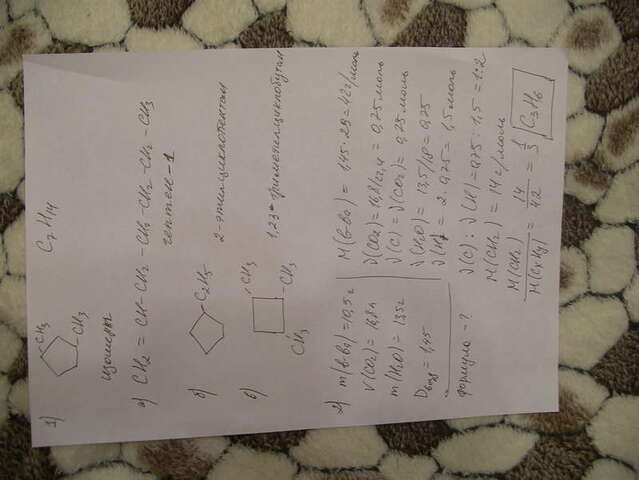 1) CH3 CH3 C7H14
изомеры
а) CH2 = CH - CH2 - CH2 - CH2 - CH2 - CH3
гептен-1
б) C2H5
2-этилциклопентан
в) CH3 CH3 CH3
1,2,3 триметилциклобутан
2) m(в-ва) = 10,5г
V(CO2) = 16,8л
m(H2O) = 13,5г
Dвозд = 1,45
формула - ?
M(в-ва) = 1,45 · 29 = 42 г/моль
ν(CO2) = 16,8/22,4 = 0,75 моль
ν(C) = ν(CO2) = 0,75 моль
ν(H2O) = 13,5/18 = 0,75
ν(H) = 2 · 0,75 = 1,5 моль
ν(C) : ν(H) = 0,75 : 1,5 = 1:2
M(CH2) = 14 г/моль
M(CH2) / M(CxHy) = 14 / 42 = 1 / 3 C3H6